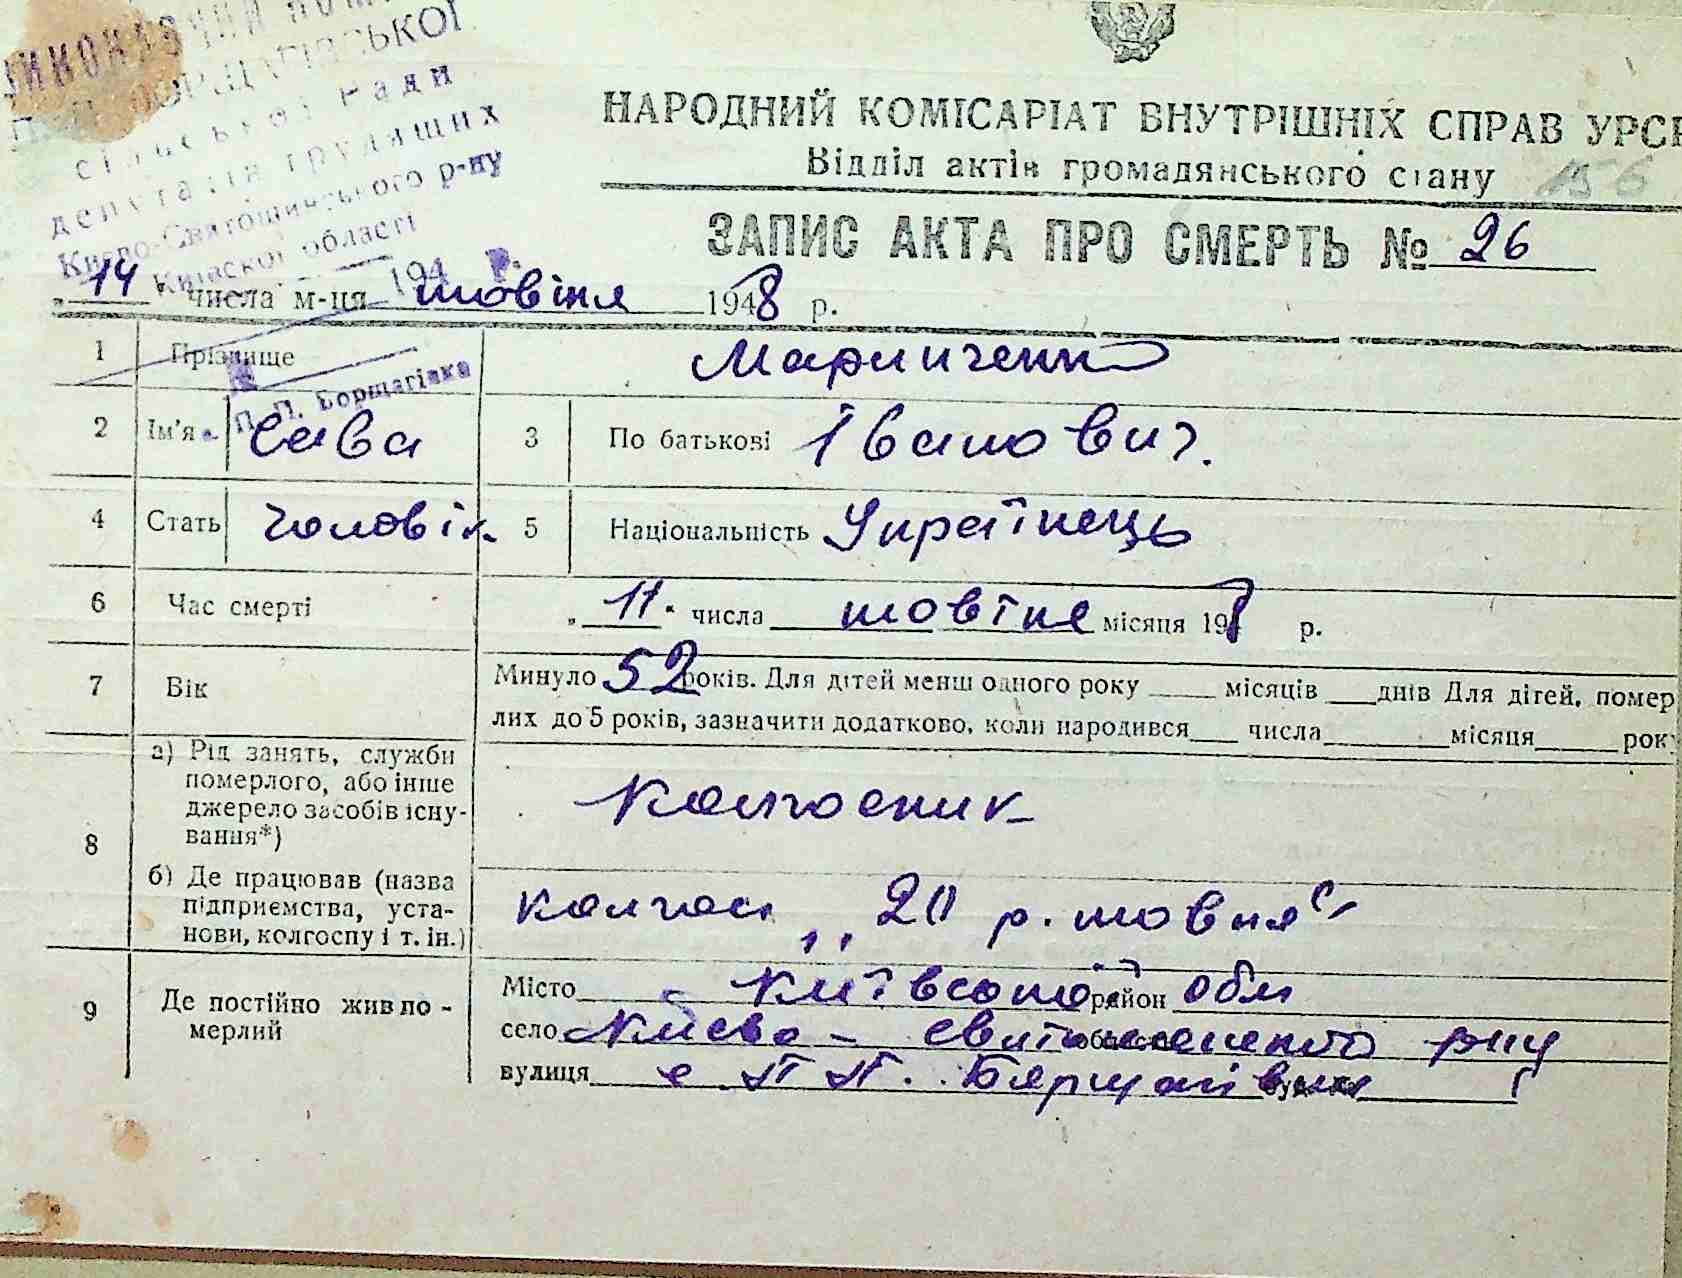 виконавчий
П.П. БОРЩАГІВСЬКОЇ
сільської ради
депутатів трудящих
Києво-Святошинського р-ну
Київської області
194 р.
П. П. Борщагівка
НАРОДНИЙ КОМІСАРІАТ ВНУТРІШНІХ СПРАВ УРСР
Відділ актів громадянського стану 156
ЗАПИС АКТА ПРО СМЕРТЬ № 26
"14" числа м-ця жовтня 1948 р.
1 Прізвище Марниченко
2 Ім'я Сава 3 По батькові Іванович.
4 Стать чоловік 5 Національність Українець
6 Час смерті "11" числа жовтня місяця 198 р.
7 Вік Минуло 52 років. Для дітей менш одного року ___ місяців ___ днів Для дітей, помер
лих до 5 років, зазначити додатково, коли народився ___ числа ___ місяця ___ рок
8 а) Рід занять, служби
померлого, або інше
джерело засобів існу-
вання*)
Колгосник
б) Де працював (назва
підприємства, уста-
нови, колгоспу і т. ін.)
колгосп „20 р. жовтня"
9 Де постійно жив по-
мерлий
Місто Київської район обл
село Києво-Святошинського рну
вулиця с П П. Борщагівка